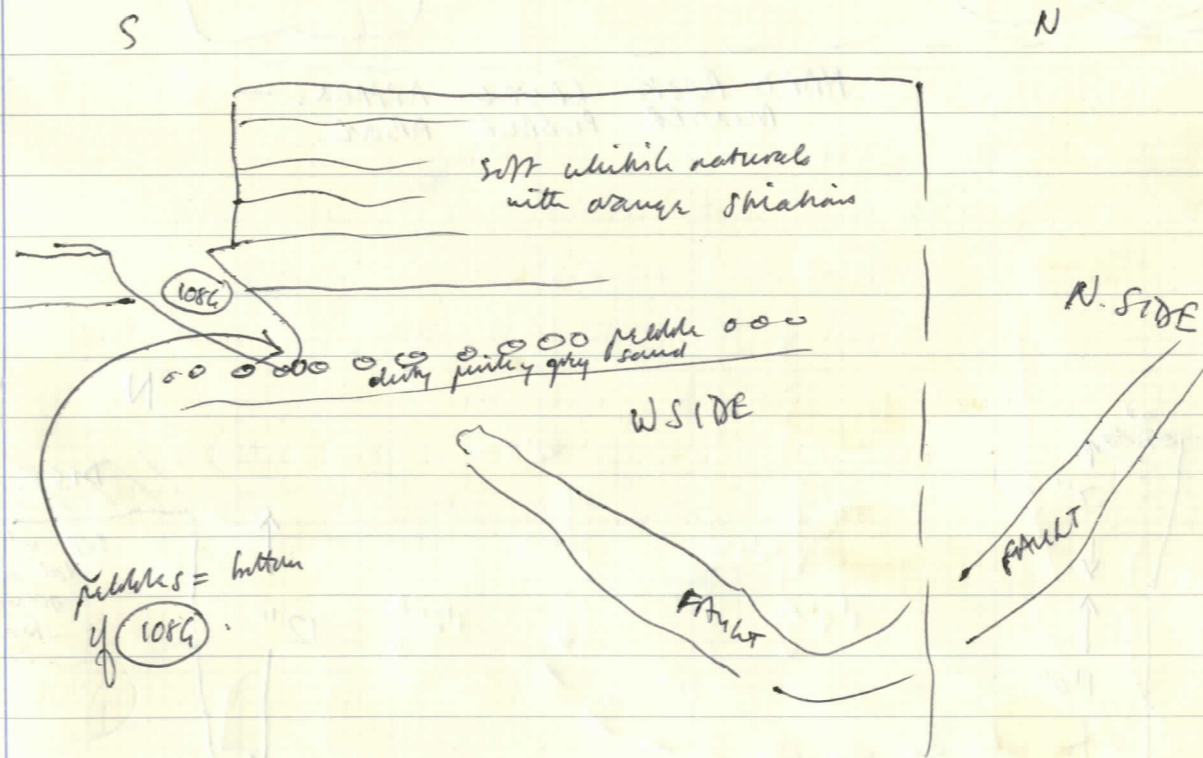 S
N
soft whitish naturals
with orange striations
108G
N. SIDE
pebble
dirty pinky grey sand
W SIDE
FAULT
FAULT
pebbles = bottom
of 108G.